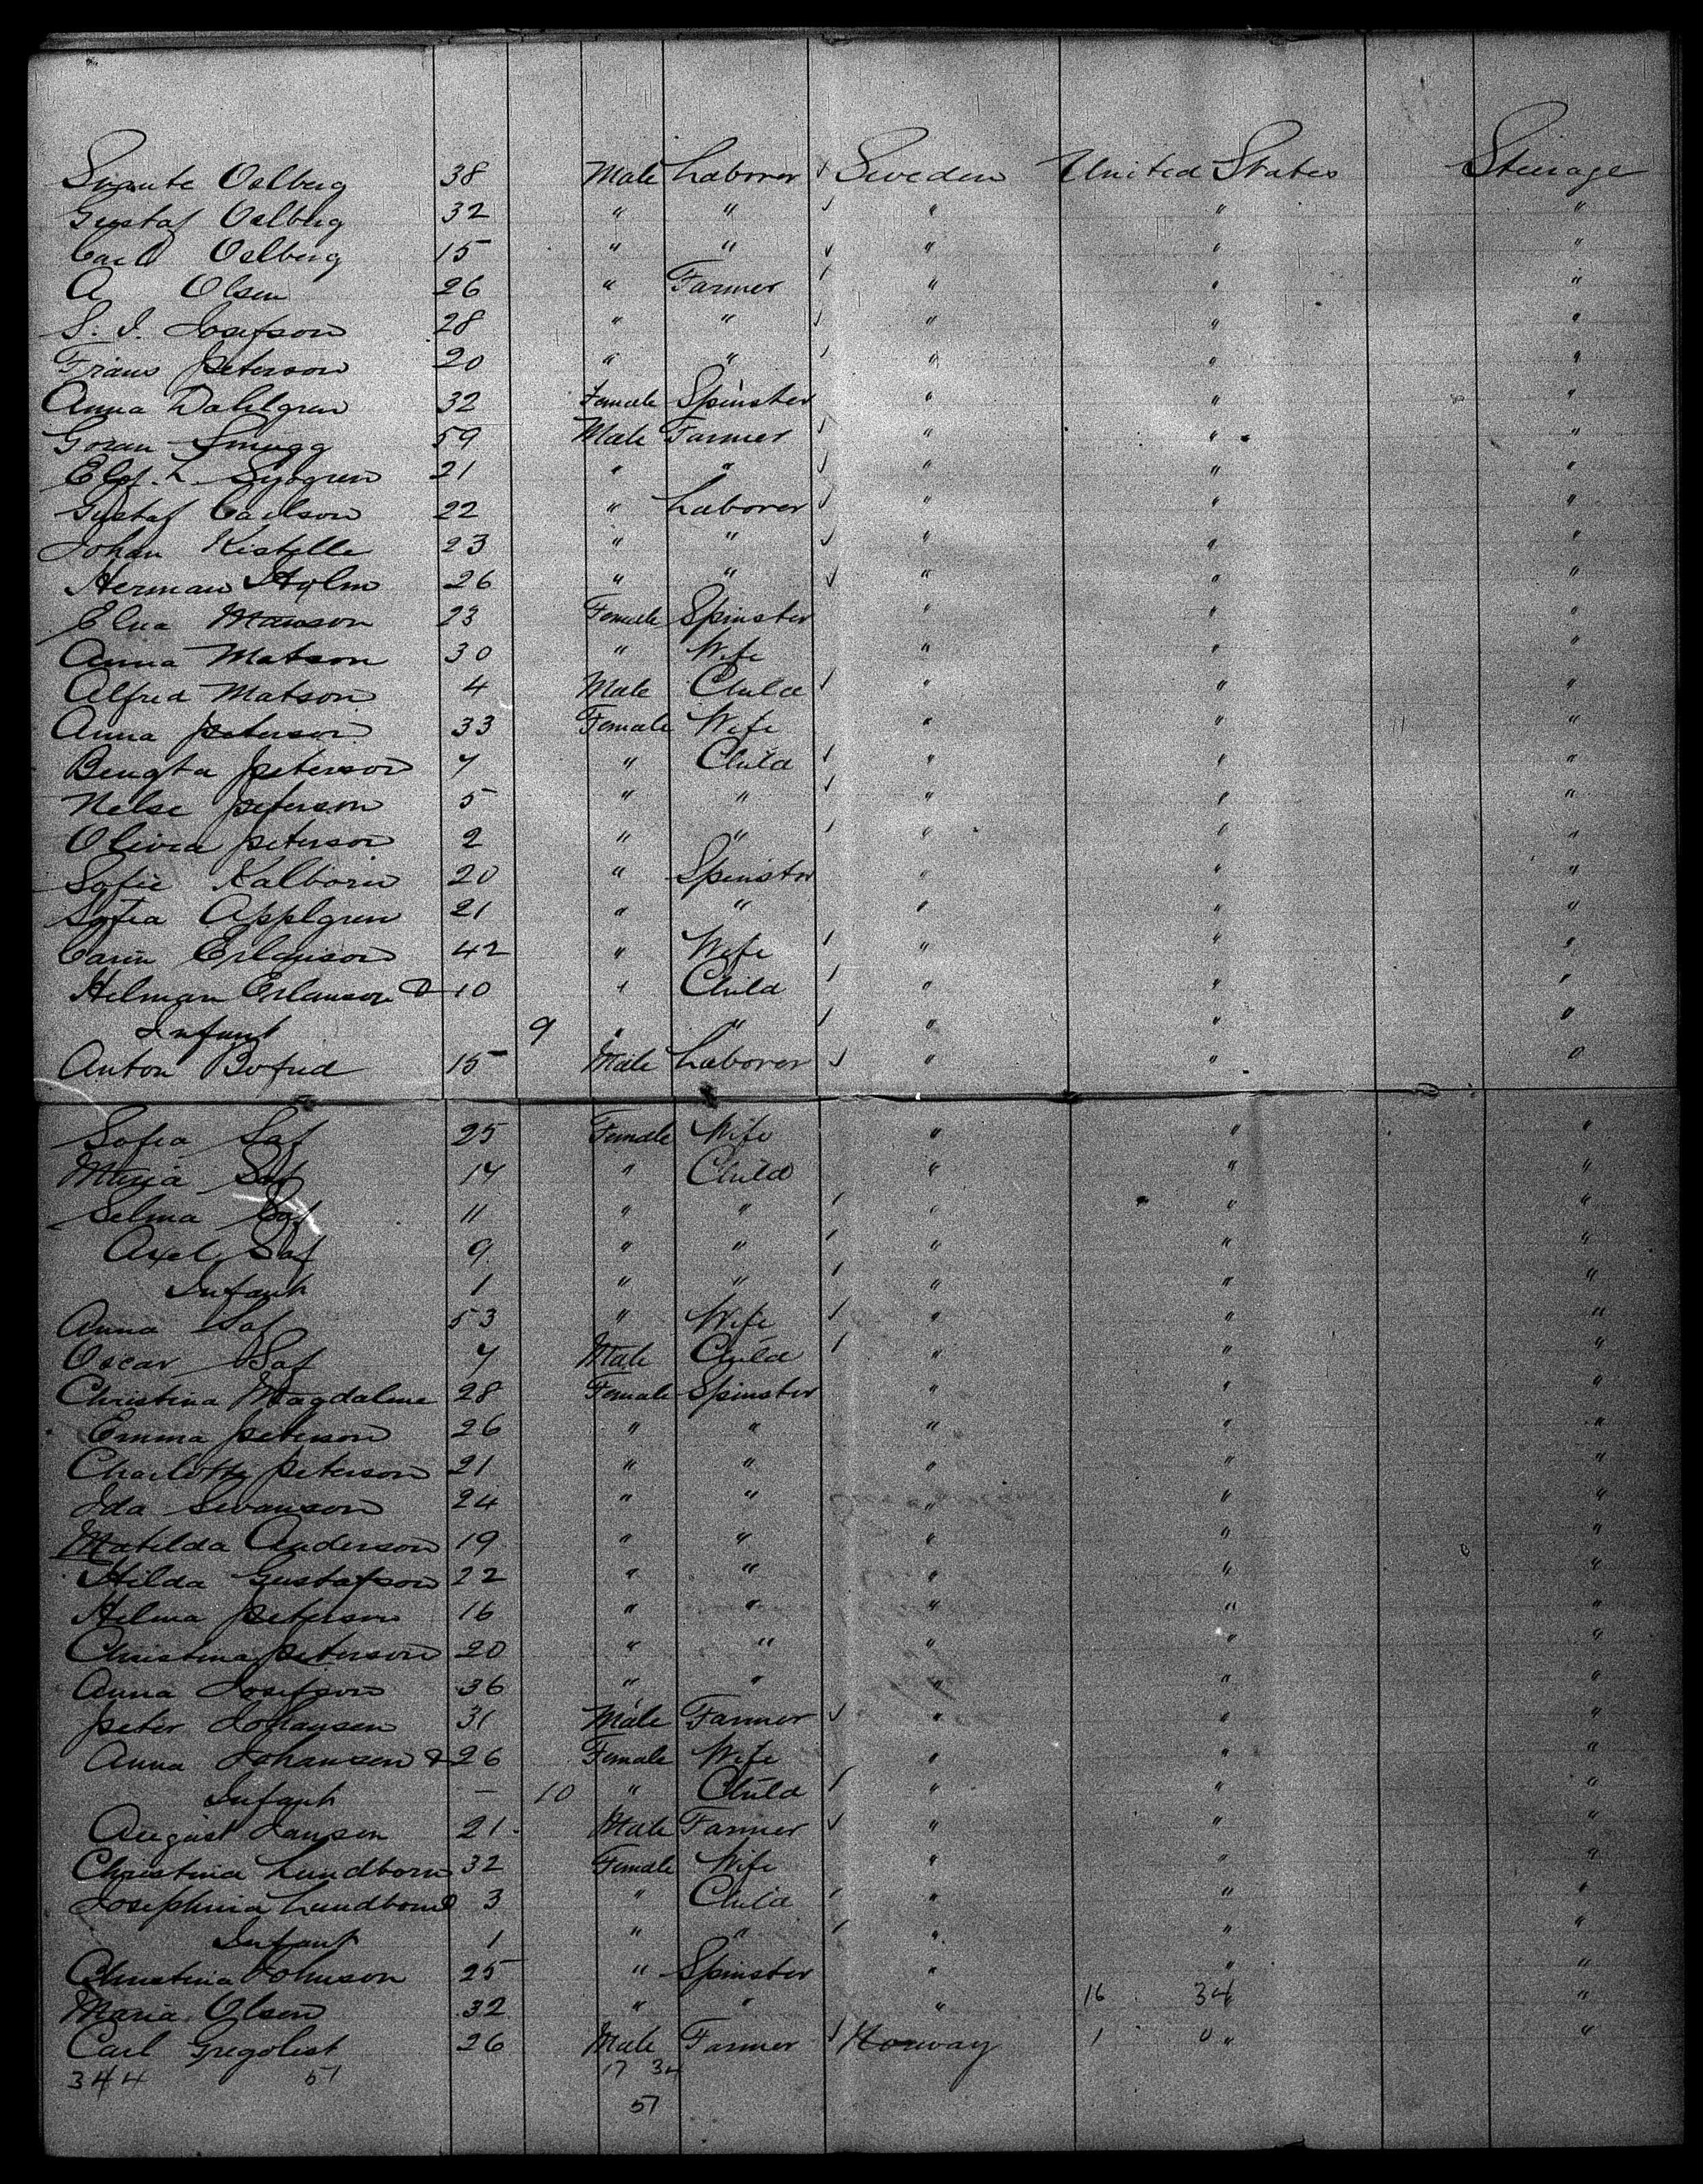 Oelberg 38 Male Laborer √ Sweden United States Steerage
Gustaf Oelberg 32 " " √ " " "
Carl Oelberg 15 " " √ " " "
A Olsen 26 " Farmer √ " " "
S. I. Josefson 28 " " √ " " "
Frans Peterson 20 " " √ " " "
Anna Dahlgren 32 Female Spinster " " "
Goran Smugg 59 Male Farmer √ " " "
L 21 " " √ " " "
Gustaf Carlson 22 " Laborer √ " " "
Johan Kistelle 23 " " √ " " "
Herman Holm 26 " " √ " " "
Elna Manson 23 Female Spinster " " "
Anna Matson 30 " Wife " " "
Alfred Matson 4 Male Child √ " " "
Anna Peterson 33 Female Wife " " "
Bengta Peterson 7 " Child √ " " "
Nelse Peterson 5 " " √ " " "
Olivia Peterson 2 " " √ " " "
Sofie Kalborn 20 " Spinster " " "
Sofia Applgren 21 " " " " "
Carin Erlanson 42 " Wife √ " " "
Hilman Erlanson & 10 " Child √ " " "
Infant 9 " " √ " " "
Anton Bofud 15 Male Laborer √ " " "
Sofia Saf 25 Female Wife " " "
Maria Saf 14 " Child " " "
Selma Saf 11 " " √ " " "
Axel Saf 9 " " √ " " "
Infant 1 " " √ " " "
Anna Saf 53 " Wife √ " " "
Oscar Saf 7 Male Child √ " " "
Christina Magdalene 28 Female Spinster " " "
Emma Peterson 26 " " " " "
Charlotte Peterson 21 " " " " "
Ida Swanson 24 " " " " "
Matilda Anderson 19 " " " " "
Hilda Gustafson 22 " " " " "
Helma Peterson 16 " " " " "
Christina Peterson 20 " " " " "
Anna Josefson 36 " " " " "
Peter Johansen 31 Male Farmer √ " " "
Anna Johansen & 26 Female Wife " " "
Infant — 10 " Child √ " " "
August Jansen 21 Male Farmer √ " " "
Christina Lundborn 32 Female Wife " " "
Josephina Lundborn 3 " Child √ " " "
Infant 1 " " √ " " "
Christina Johnson 25 " Spinster " " "
Maria Olsen 32 " " " 16 34 " "
Carl Gregolist 26 Male Farmer √ Norway 1 0 " "
344 51 17 34
51